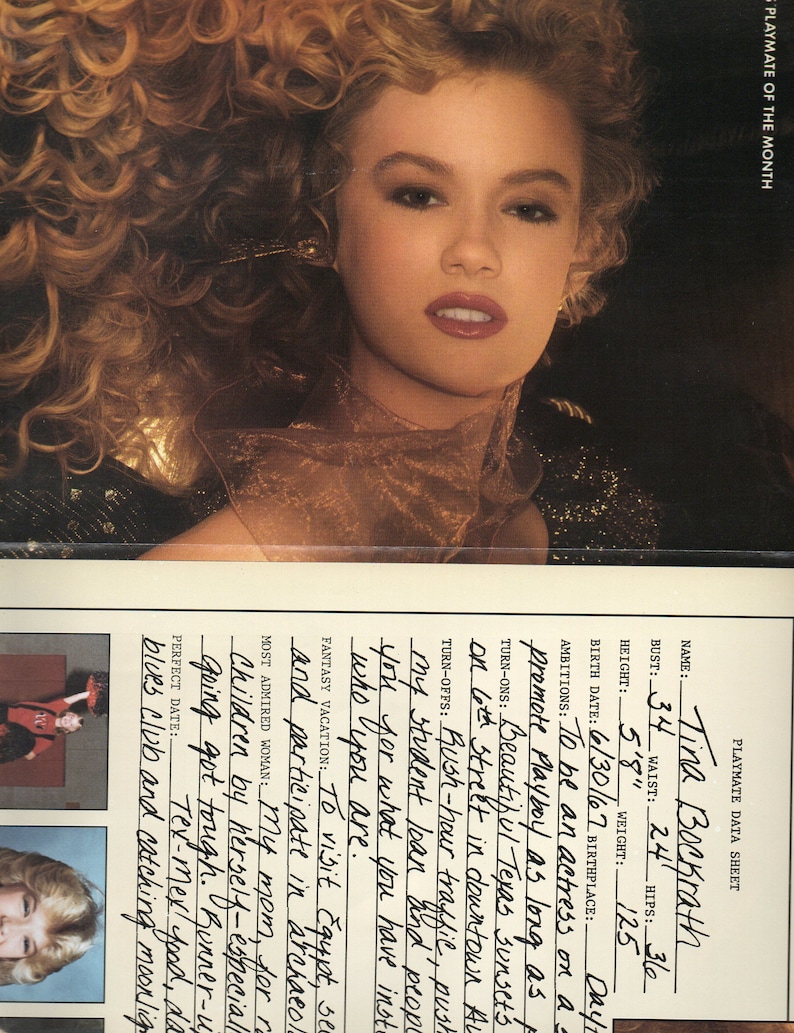 PLAYMATE OF THE MONTH
PLAYMATE DATA SHEET
NAME: Tina Bockrath
BUST: 34 WAIST: 24 HIPS: 36
HEIGHT: 5'8" WEIGHT: 125
BIRTH DATE: 6/30/67 BIRTHPLACE: Day
AMBITIONS: To be an actress on a
promote Playboy as long as
TURN-ONS: Beautiful Texas sunsets
on 6th Street in downtown Au
TURN-OFFS: Rush-hour traffic,
my student loan and peop
you for what you have inst
who you are.
FANTASY VACATION: To visit Egypt, se
and participate in archaeol
MOST ADMIRED WOMAN: My mom, for r
children by herself-especial
going got tough. Runner-u
PERFECT DATE: Tex-Mex food, da
blues club and catching moonlig